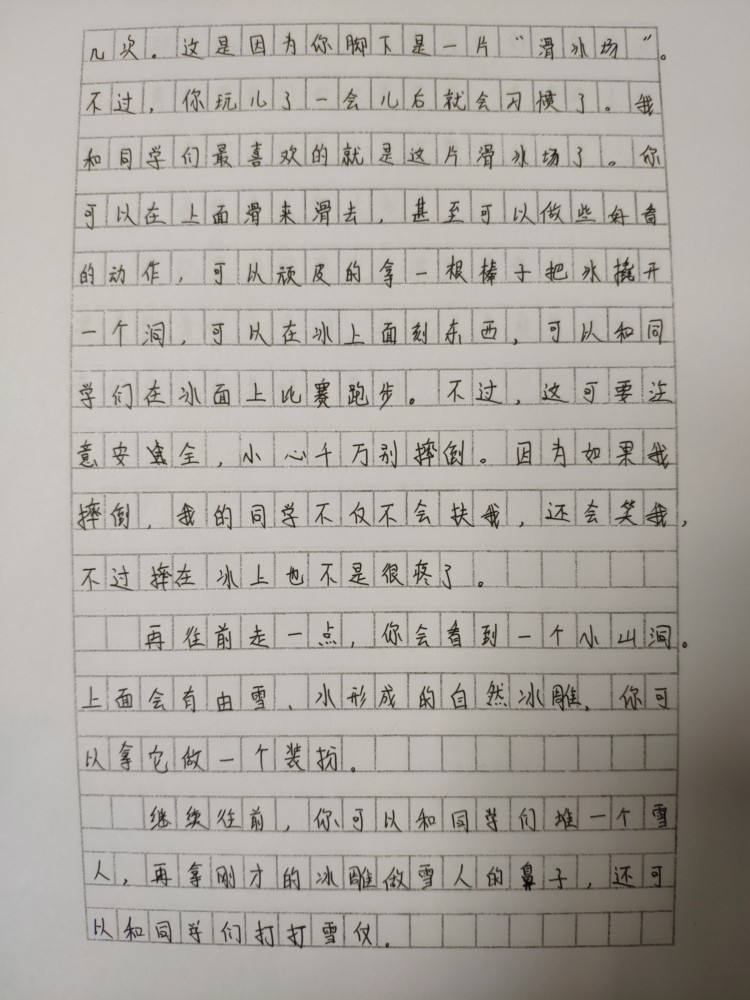 几次。这是因为你脚下是一片“滑冰场”。
不过，你玩儿了一会儿后就会习惯了。我
和同学们最喜欢的就是这片滑冰场了。你
可以在上面滑来滑去，甚至可以做些好看
的动作，可以顽皮的拿一根棒子把冰撬开
一个洞，可以在冰上面刻东西，可以和同
学们在冰面上比赛跑步。不过，这可要注
意安全，小心千万别摔倒。因为如果我
摔倒，我的同学不仅不会扶我，还会笑我，
不过摔在冰上也不是很疼了。
再往前走一点，你会看到一个小山洞。
上面会有由雪、冰形成的自然冰雕，你可
以拿它做一个装扮。
继续往前，你可以和同学们堆一个雪
人，再拿刚才的冰雕做雪人的鼻子，还可
以和同学们打打雪仗。